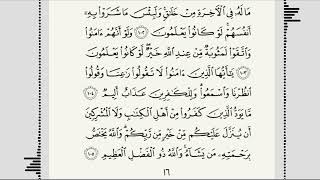 مَا لَهُۥ فِى ٱلْـَٔاخِرَةِ مِنْ خَلَـٰقٍ وَلَبِئْسَ مَا شَرَوْا۟ بِهِۦٓ
أَنفُسَهُمْ لَوْ كَانُوا۟ يَعْلَمُونَ ١٠٢ وَلَوْ أَنَّهُمْ ءَامَنُوا۟
وَٱتَّقَوْا۟ لَمَثُوبَةٌ مِّنْ عِندِ ٱللَّهِ خَيْرٌ لَّوْ كَانُوا۟ يَعْلَمُونَ
١٠٣ يَـٰٓأَيُّهَا ٱلَّذِينَ ءَامَنُوا۟ لَا تَقُولُوا۟ رَٰعِنَا وَقُولُوا۟
ٱنظُرْنَا وَٱسْمَعُوا۟ وَلِلْكَـٰفِرِينَ عَذَابٌ أَلِيمٌ ١٠٤
مَّا يَوَدُّ ٱلَّذِينَ كَفَرُوا۟ مِنْ أَهْلِ ٱلْكِتَـٰبِ وَلَا ٱلْمُشْرِكِينَ
أَن يُنَزَّلَ عَلَيْكُم مِّنْ خَيْرٍ مِّن رَّبِّكُمْ وَٱللَّهُ يَخْتَصُّ
بِرَحْمَتِهِۦ مَن يَشَآءُ وَٱللَّهُ ذُو ٱلْفَضْلِ ٱلْعَظِيمِ ١٠٥
١٦